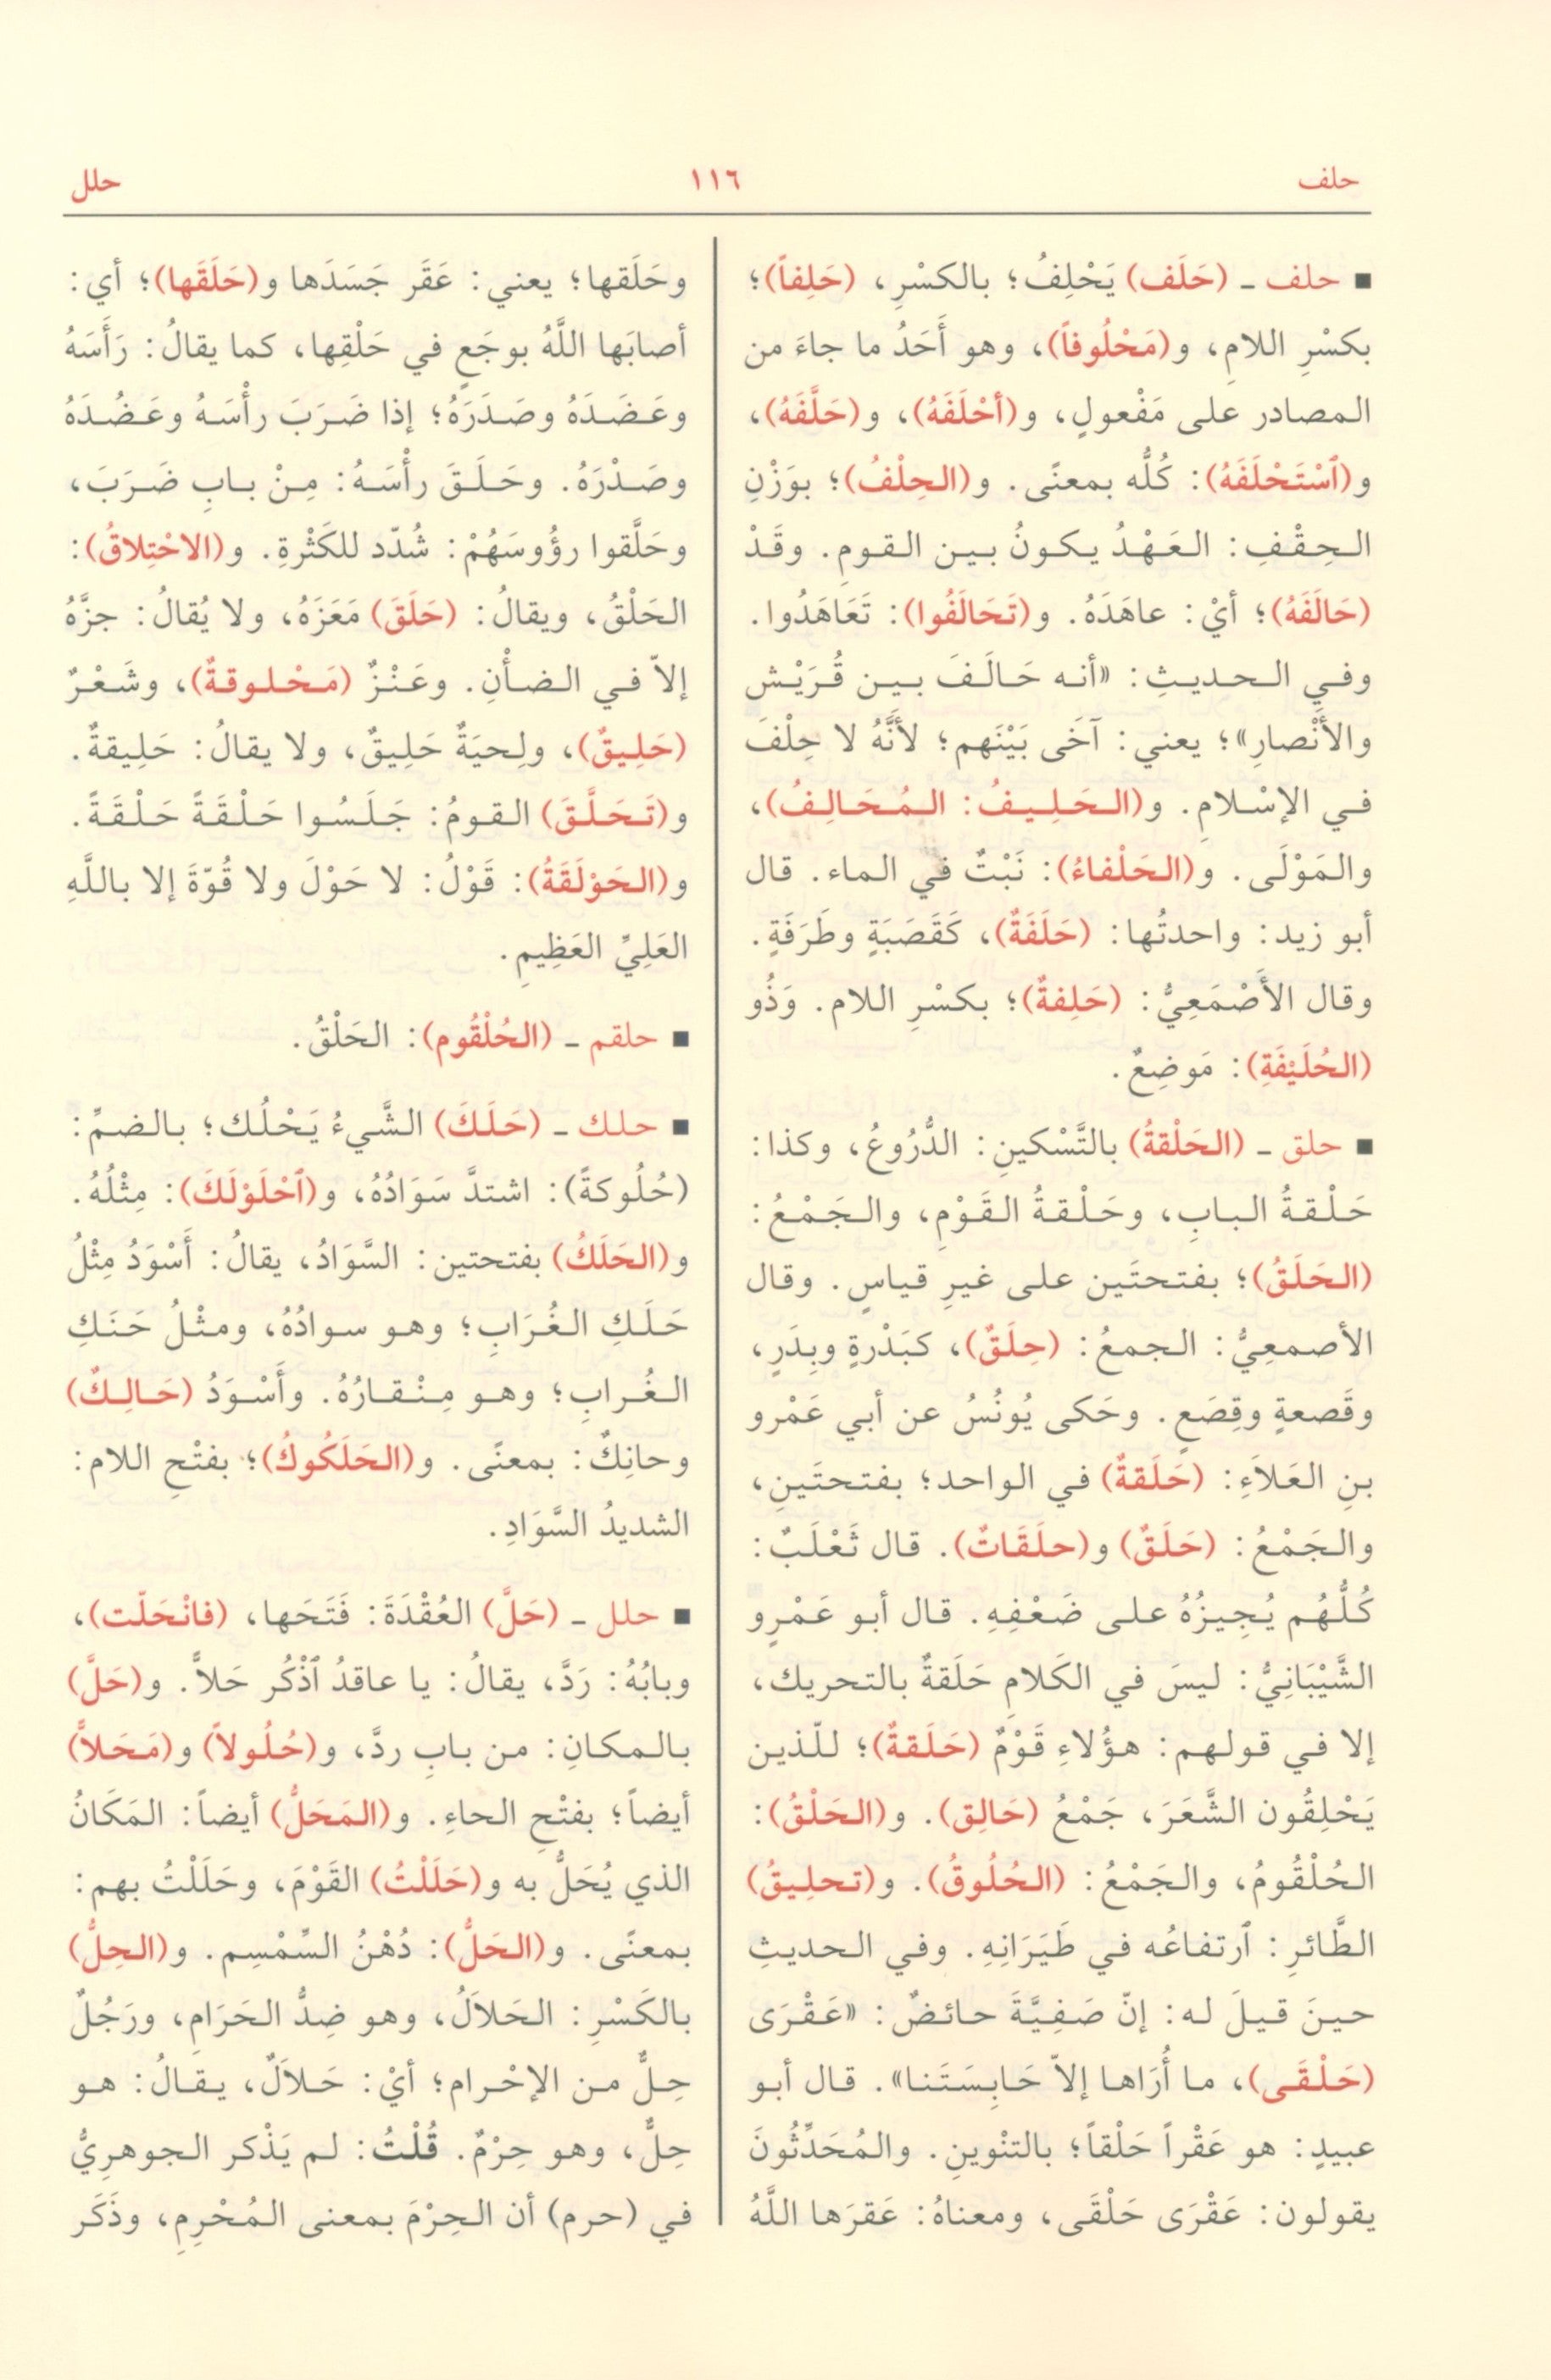 حلف
١١٦
حلل
■ حلف ـ (حَلَف) يَحْلِفُ؛ بالكسْرِ، (حَلِفاً)؛
بكسْرِ اللامِ، و(مَحْلُوفاً)، وهو أَحَدُ ما جاءَ من
المصادر على مَفْعولٍ، و(أحْلَفَهُ)، و(حَلَّفَهُ)،
و(ٱسْتَحْلَفَهُ): كُلُّه بمعنًى. و(الحِلْفُ)؛ بوَزْنِ
الحِقْفِ: العَهْدُ يكونُ بين القومِ. وقَدْ
(حَالَفَهُ)؛ أيْ: عاهَدَهُ. و(تَحَالَفُوا): تَعَاهَدُوا.
وفي الحديثِ: «أنه حَالَفَ بين قُرَيْش
والأَنْصارِ»؛ يعني: آخَى بَيْنَهم؛ لأنَّهُ لا حِلْفَ
في الإسْلامِ. و(الحَلِيفُ: المُحَالِفُ)،
والمَوْلَى. و(الحَلْفاءُ): نَبْتٌ في الماء. قال
أبو زيد: واحدتُها: (حَلَفَةٌ)، كَقَصَبَةٍ وطَرَفَةٍ.
وقال الأَصْمَعِيُّ: (حَلِفةٌ)؛ بكسْرِ اللام. وَذُو
(الحُلَيْفَةِ): مَوضِعٌ.
■ حلق ـ (الحَلْقةُ) بالتَّسْكينِ: الدُّرُوعُ، وكذا:
حَلْقةُ البابِ، وحَلْقةُ القَوْمِ، والجَمْعُ:
(الحَلَقُ)؛ بفتحتَين على غيرِ قياسٍ. وقال
الأصمعِيُّ: الجمعُ: (حِلَقٌ)، كبَدْرةٍ وبِدَرٍ،
وقَصعةٍ وقِصَعٍ. وحَكى يُونُسُ عن أبي عَمْرو
بنِ العَلاَءِ: (حَلَقةٌ) في الواحد؛ بفتحتَينِ،
والجَمْعُ: (حَلَقٌ) و(حلَقَاتٌ). قال ثَعْلَبٌ:
كُلُّهُم يُجِيزُهُ على ضَعْفِهِ. قال أبو عَمْرٍو
الشَّيْبَانِيُّ: ليسَ في الكَلامِ حَلَقةٌ بالتحريك،
إلا في قولهم: هؤُلاءِ قَوْمٌ (حَلَقةٌ)؛ للّذين
يَحْلِقُون الشَّعَرَ، جَمْعُ (حَالِق). و(الحَلْقُ):
الحُلْقُومُ، والجَمْعُ: (الحُلُوقُ). و(تحلِيقُ)
الطَّائرِ: ٱرتفاعُه في طَيَرَانِهِ. وفي الحديثِ
حينَ قيلَ له: إنّ صَفِيَّةَ حائضٌ: «عَقْرَى
(حَلْقَى)، ما أُرَاها إلاّ حَابِسَتَنا». قال أبو
عبيدٍ: هو عَقْراً حَلْقاً؛ بالتنْوينِ. والمُحَدِّثُونَ
يقولون: عَقْرَى حَلْقَى، ومعناهُ: عَقرَها اللَّهُ
وحَلَقها؛ يعني: عَقَر جَسَدَها و(حَلَقَها)؛ أي:
أصابَها اللَّهُ بوجَعٍ في حَلْقِها، كما يقالُ: رَأَسَهُ
وعَضَدَهُ وصَدَرَهُ؛ إذا ضَرَبَ رأْسَهُ وعَضُدَهُ
وصَدْرَهُ. وحَلَقَ رأْسَهُ: مِنْ بابِ ضَرَبَ،
وحَلَّقوا رؤُوسَهُمْ: شُدّد للكَثْرةِ. و(الاحْتِلاقُ):
الحَلْقُ، ويقالُ: (حَلَقَ) مَعَزَهُ، ولا يُقالُ: جزَّهُ
إلاّ في الضأْنِ. وعَنْزٌ (مَحْلوقةٌ)، وشَعْرٌ
(حَلِيقٌ)، ولِحيَةٌ حَلِيقٌ، ولا يقالُ: حَلِيقةٌ.
و(تَحَلَّقَ) القومُ: جَلَسُوا حَلْقَةً حَلْقَةً.
و(الحَوْلَقَةُ): قَوْلُ: لا حَوْلَ ولا قُوّةَ إلا باللَّهِ
العَلِيِّ العَظِيمِ.
■ حلقم ـ (الحُلْقُوم): الحَلْقُ.
■ حلك ـ (حَلَكَ) الشَّيءُ يَحْلُك؛ بالضمِّ:
(حُلُوكةً): اشتدَّ سَوَادُهُ، و(ٱحْلَوْلَكَ): مِثْلُهُ.
و(الحَلَكُ) بفتحتين: السَّوَادُ، يقالُ: أَسْوَدُ مِثْلُ
حَلَكِ الغُرَابِ؛ وهو سوادُهُ، ومثْلُ حَنَكِ
الغُرابِ؛ وهو مِنْقارُهُ. وأَسْوَدُ (حَالِكٌ)
وحانِكٌ: بمعنًى. و(الحَلَكُوكُ)؛ بفتْحِ اللام:
الشديدُ السَّوَادِ.
■ حلل ـ (حَلَّ) العُقْدَةَ: فَتَحَها، (فانْحَلّت)،
وبابُهُ: رَدَّ، يقالُ: يا عاقدُ ٱذْكُر حَلاًّ. و(حَلَّ)
بالمكانِ: من بابِ ردَّ، و(حُلُولاً) و(مَحَلاًّ)
أيضاً؛ بفتْحِ الحاءِ. و(المَحَلُّ) أيضاً: المَكَانُ
الذي يُحَلُّ به و(حَلَلْتُ) القَوْمَ، وحَلَلْتُ بهم:
بمعنًى. و(الحَلُّ): دُهْنُ السِّمْسِم. و(الحِلُّ)
بالكَسْرِ: الحَلاَلُ، وهو ضِدُّ الحَرَامِ، ورَجُلٌ
حِلٌّ من الإحْرام؛ أيْ: حَلاَلٌ، يقالُ: هو
حِلٌّ، وهو حِرْمٌ. قُلْتُ: لم يَذْكر الجوهرِيُّ
في (حرم) أن الحِرْمَ بمعنى المُحْرِمِ، وذَكَر